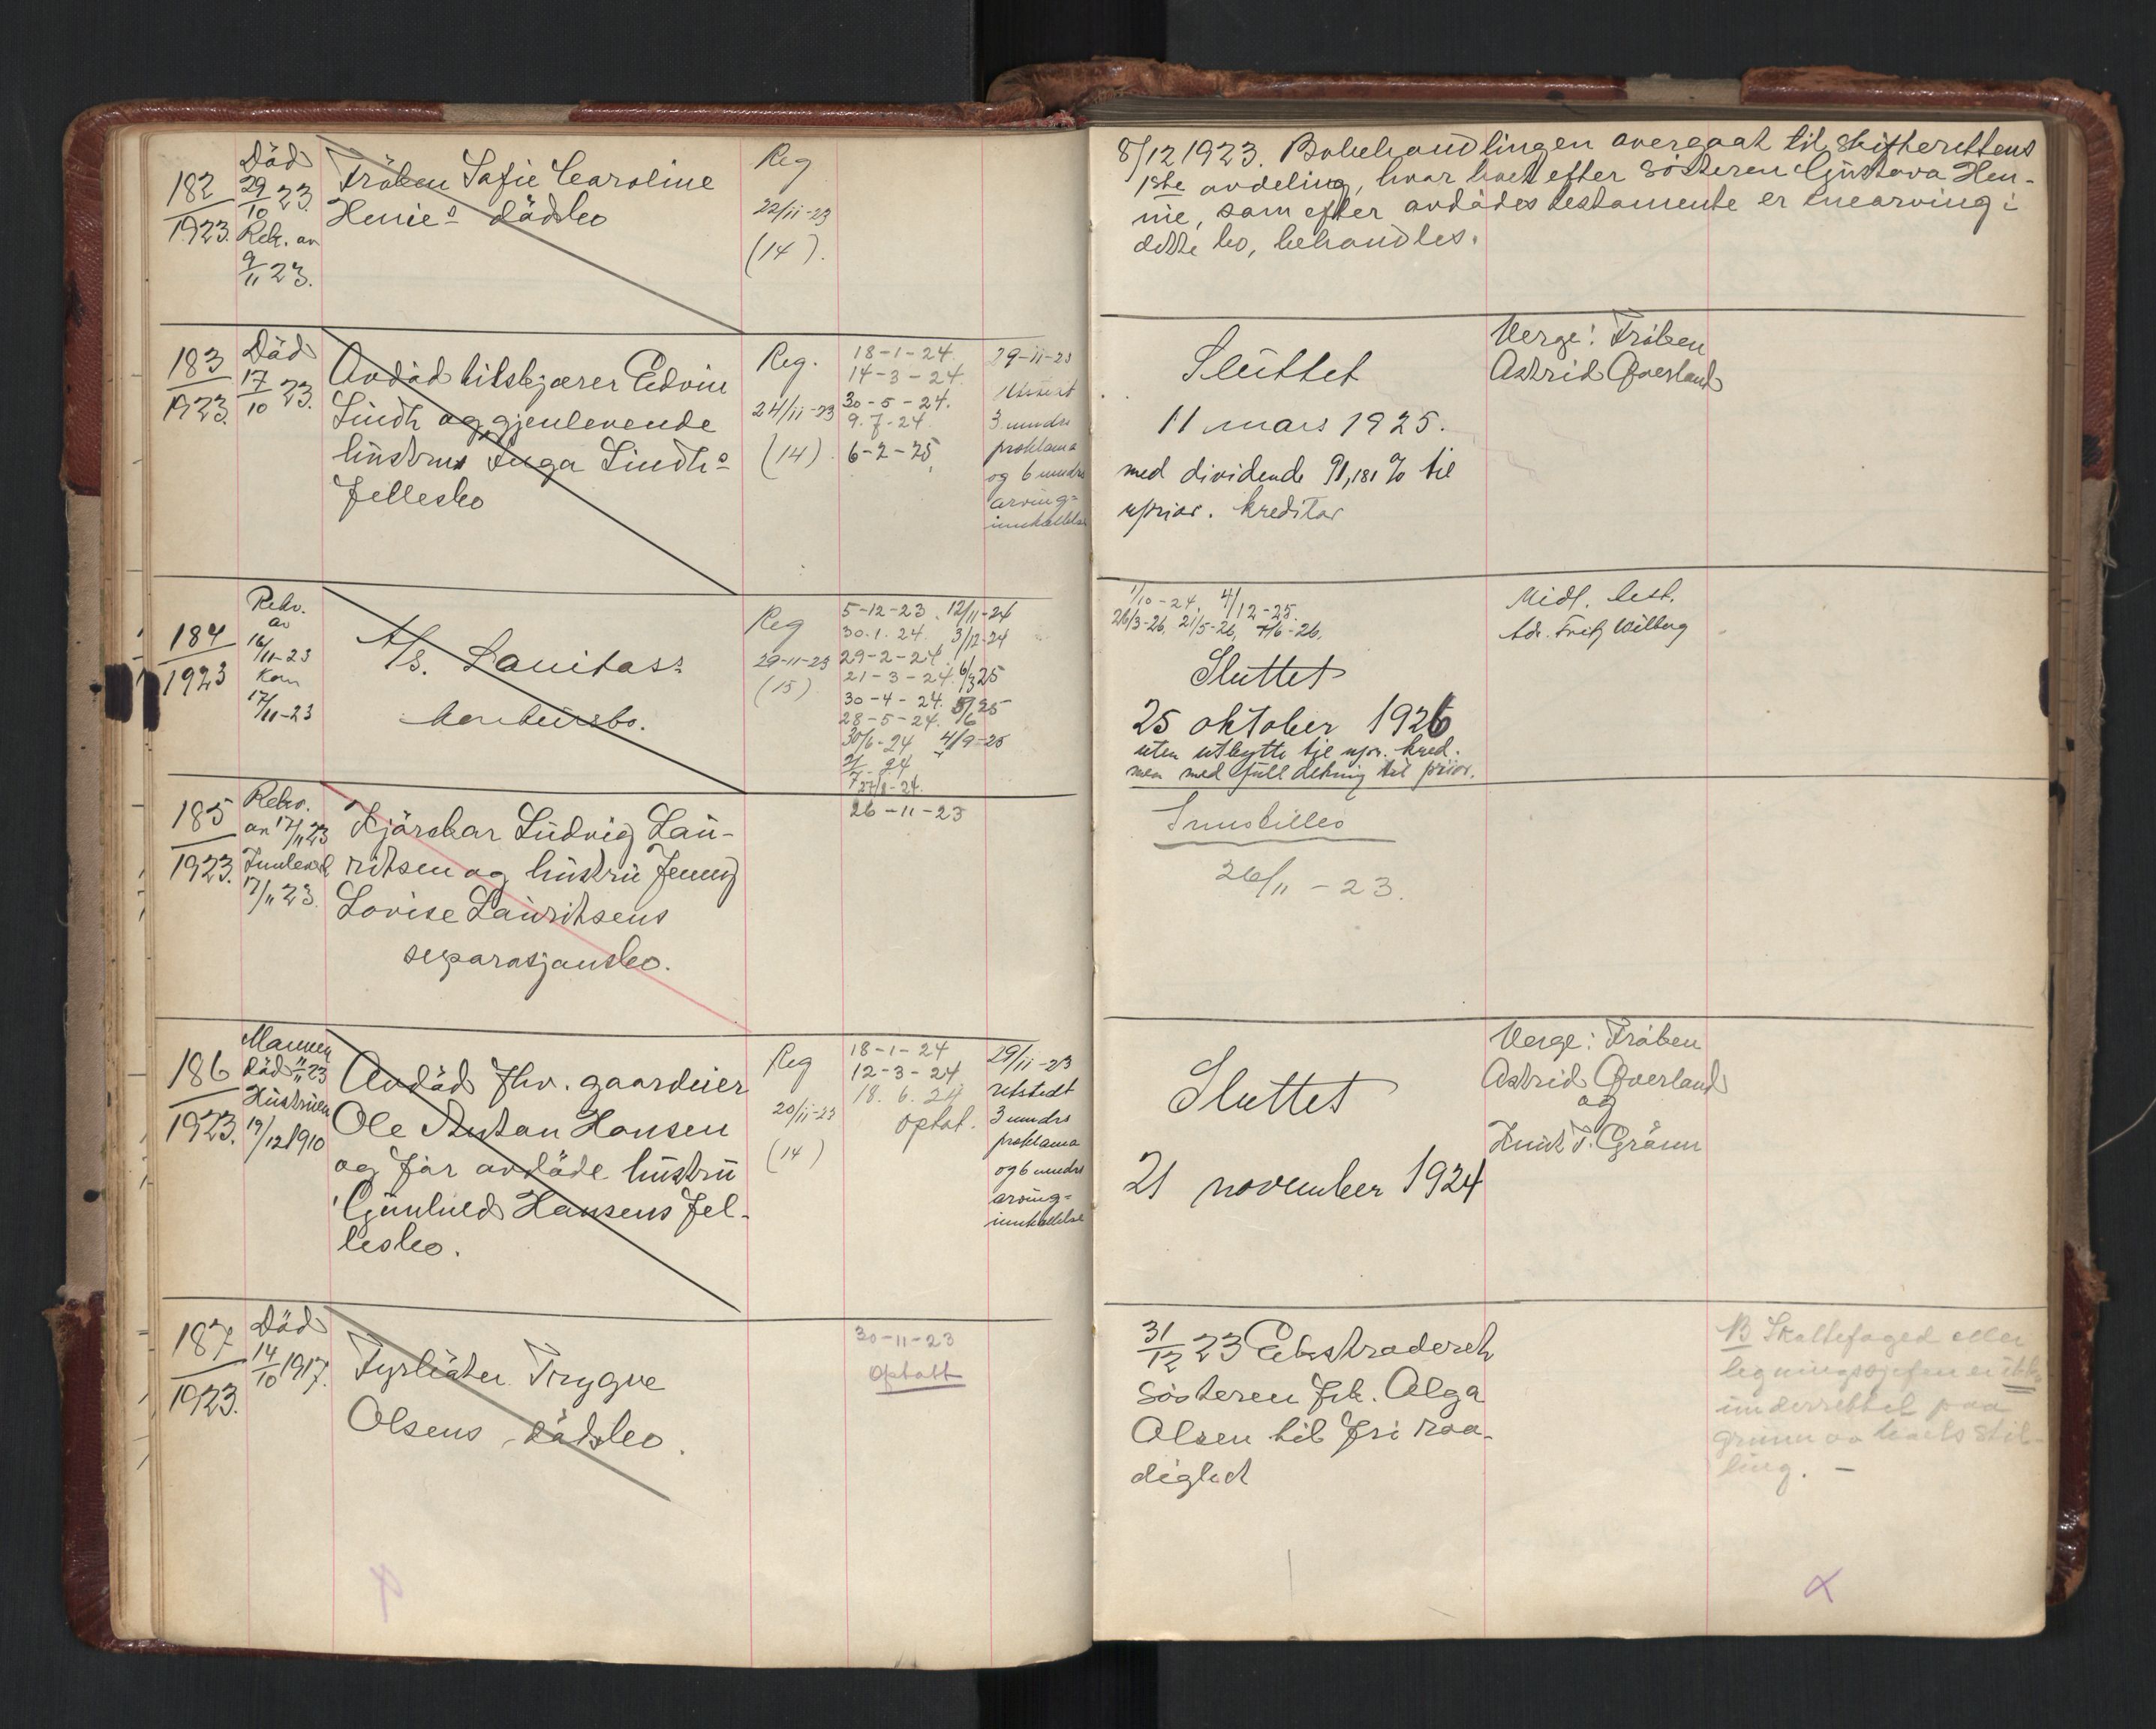 182
1923.
Död
29/10 23.
Rek. av
9/11 23.
Fröken Sofie Caroline
Henies dödsbo
Reg
22/11-23
(14).
8/12 1923. Bobehandlingen overgaat til skifterettens
1ste avdeling, hvor boet efter søsteren Gustava Hen-
nie, som efter avdødes testamente er enearving i
dette bo, behandles.
183
1923.
Död
17/10 23.
Avdöd bilskjører Edvin
Lindh og gjenlevende
hustru Inga Lindhs
Fellesbo
Reg.
24/11-23
(14).
18-1-24.
14-3-24.
30-5-24.
9.7-24.
6-2-25
29-11-23
3 mndrs
proklama
og 6 mndrs
arving-
innkallelse
Sluttet
11 mars 1925.
med dividende 91,181 % til
uprior. kreditor
Verge: Frøken
Astrid Qverland
184
1923
Rekv.
av
16/11-23
Kom
17/11-23
A/S. Sanitass
konkursbo.
Reg
29-11-23
(15)
5-12-23. 12/11-24
30.1.24. 3/12-24
29-2-24.
21-3-24. 6/3 25
30-4-24. 5/6 25
28-5-24.
30/6-24 4/9-25
2/7-24
27/8-24.
1/10-24, 4/12-25.
26/3-26, 21/5-26, 7/6-26.
Sluttet
25 oktober 1926
uten utbytte til upr. kred.
men med full dekning til prior.
Midl. best.
Adv. Fritz Wilberg
185
1923.
Rekv.
av 17/11 23
Innlevd
17/11 23.
Kjørekar Ludvig Lau-
ritsen og hustru Jenny
Lovise Lauritsens
separasjonsbo.
26-11-23
Innstilles
26/11-23.
186
1923.
Mannen
död 11/11 23
Hustruen
19/12 1910
Avdöd fhv. gaardeier
Ole Anton Hansen
og før avdøde hustru
Gunhild Hansens fel-
lesbo.
Reg
20/11-23
(14)
18-1-24
12-3-24
18.6.24
optat.
29/11-23
utstedt
3 mndrs
proklama
og 6 mndrs
arving-
innkallelse
Sluttet
21 november 1924
Verge: Frøken
Astrid Qverland
og
Knut T. Grønn
187
1923.
Död
14/10 1917.
Fyrbøter Trygve
Olsens dødsbo.
30-11-23
optatt
31/12 23 Ekstraderet
søsteren frk. Olga
Olsen til fri raa-
dighet
NB Skattefoged eller
ligningssjefen er ikke
underrettet paa
grunn av boets stil-
ling. –